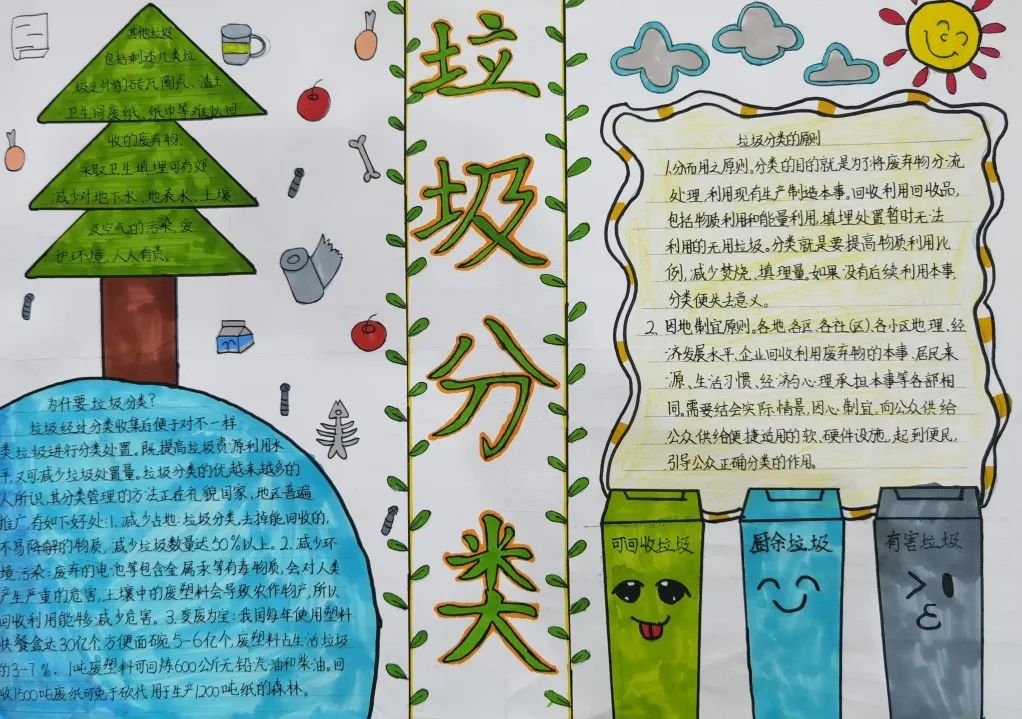 其他垃圾
包括剩述几类垃
圾之外的砖瓦陶瓷、渣土、
卫生间废纸、纸巾等难以回
收的废弃物
采取卫生填埋可有效
减少对地下水、地表水、土壤
及空气的污染，爱
护环境，人人有责。
为什要垃圾分类？
垃圾经过分类收集后便于对不一样
类垃圾进行分类处置。既提高垃圾资源利用水
平，又可减少垃圾处置量。垃圾分类的优越来越多的
人所识，其分类管理的方法正在礼貌国家、地区普遍
推广，有如下好处：1.减少占地：垃圾分类，去掉能回收的，
不易降解的物质，减少垃圾数量达50%以上。2.减少环
境污染：废弃的电池等包含金属汞等有毒物质，会对人类
产生严重的危害，土壤中的废塑料会导致农作物产，所以
回收利用能够减少危害。3.变废为宝：我国每年使用塑料
快餐盒达30亿个，方便面碗5-6亿个，废塑料占生活垃圾
的3-7%。1吨废塑料可回炼600公斤无铅汽油和柴油。回
收1500吨废纸可免于砍伐用于生产1200吨纸的森林。
垃圾分类
垃圾分类的原则
1.分而用之原则。分类的目的就是为了将废弃物分流
处理，利用现有生产制造本事。回收利用回收品，
包括物质利用和能量利用，填埋处置暂时无法
利用的无用垃圾。分类就是要提高物质利用比
例，减少焚烧、填理量。如果没有后续利用本事，
分类便失去意义。
2、因地制宜原则。各地、各区、各社（区）、各小区地理、经
济发展水平、企业回收利用废弃物的本事、居民来
源、生活习惯、经济与心理承担本事等各部相
同。需要结会实际情景，因心制宜，向公众供给
公众供给便捷适用的软、硬件设施，起到便民，
引导公众正确分类的作用。
可回收垃圾
厨余垃圾
有害垃圾